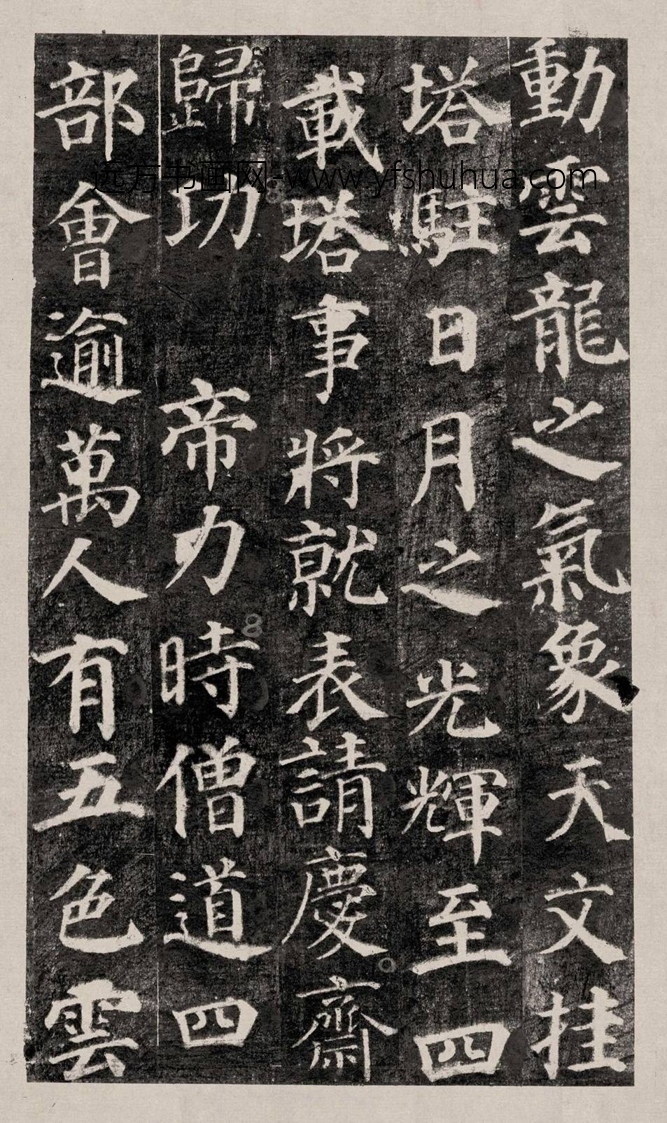 動雲龍之氣象天文挂
塔駐日月之光輝至四
載塔事將就表請慶齋
歸功 帝力時僧道四
部會逾萬人有五色雲
远方书画网-www.yfshuhua.com